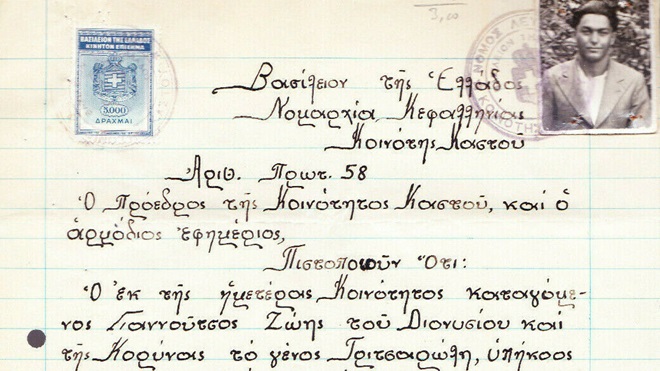 3,00
ΒΑΣΙΛΕΙΟΝ ΤΗΣ ΕΛΛΑΔΟΣ
ΚΙΝΗΤΟΝ ΕΠΙΣΗΜΑ
5.000
ΔΡΑΧΜΑΙ
Βασίλειον τῆς Ἑλλάδος
Νομαρχία Κεφαλληνίας
Κοινότης Καστοῦ
Ἀριθ. Πρωτ. 58
Ὁ Πρόεδρος τῆς Κοινότητος Καστοῦ, καί ὁ
ἁρμόδιος ἐφημέριος,
Πιστοποιοῦν Ὅτι:
Ὁ ἐκ τῆς ἡμετέρας Κοινότητος καταγόμε-
νος Γιαννοῦτσος Ζώης τοῦ Διονυσίου καί
τῆς Κορύνας τό γένος Γριτσαρώλη, ὑπήκοος